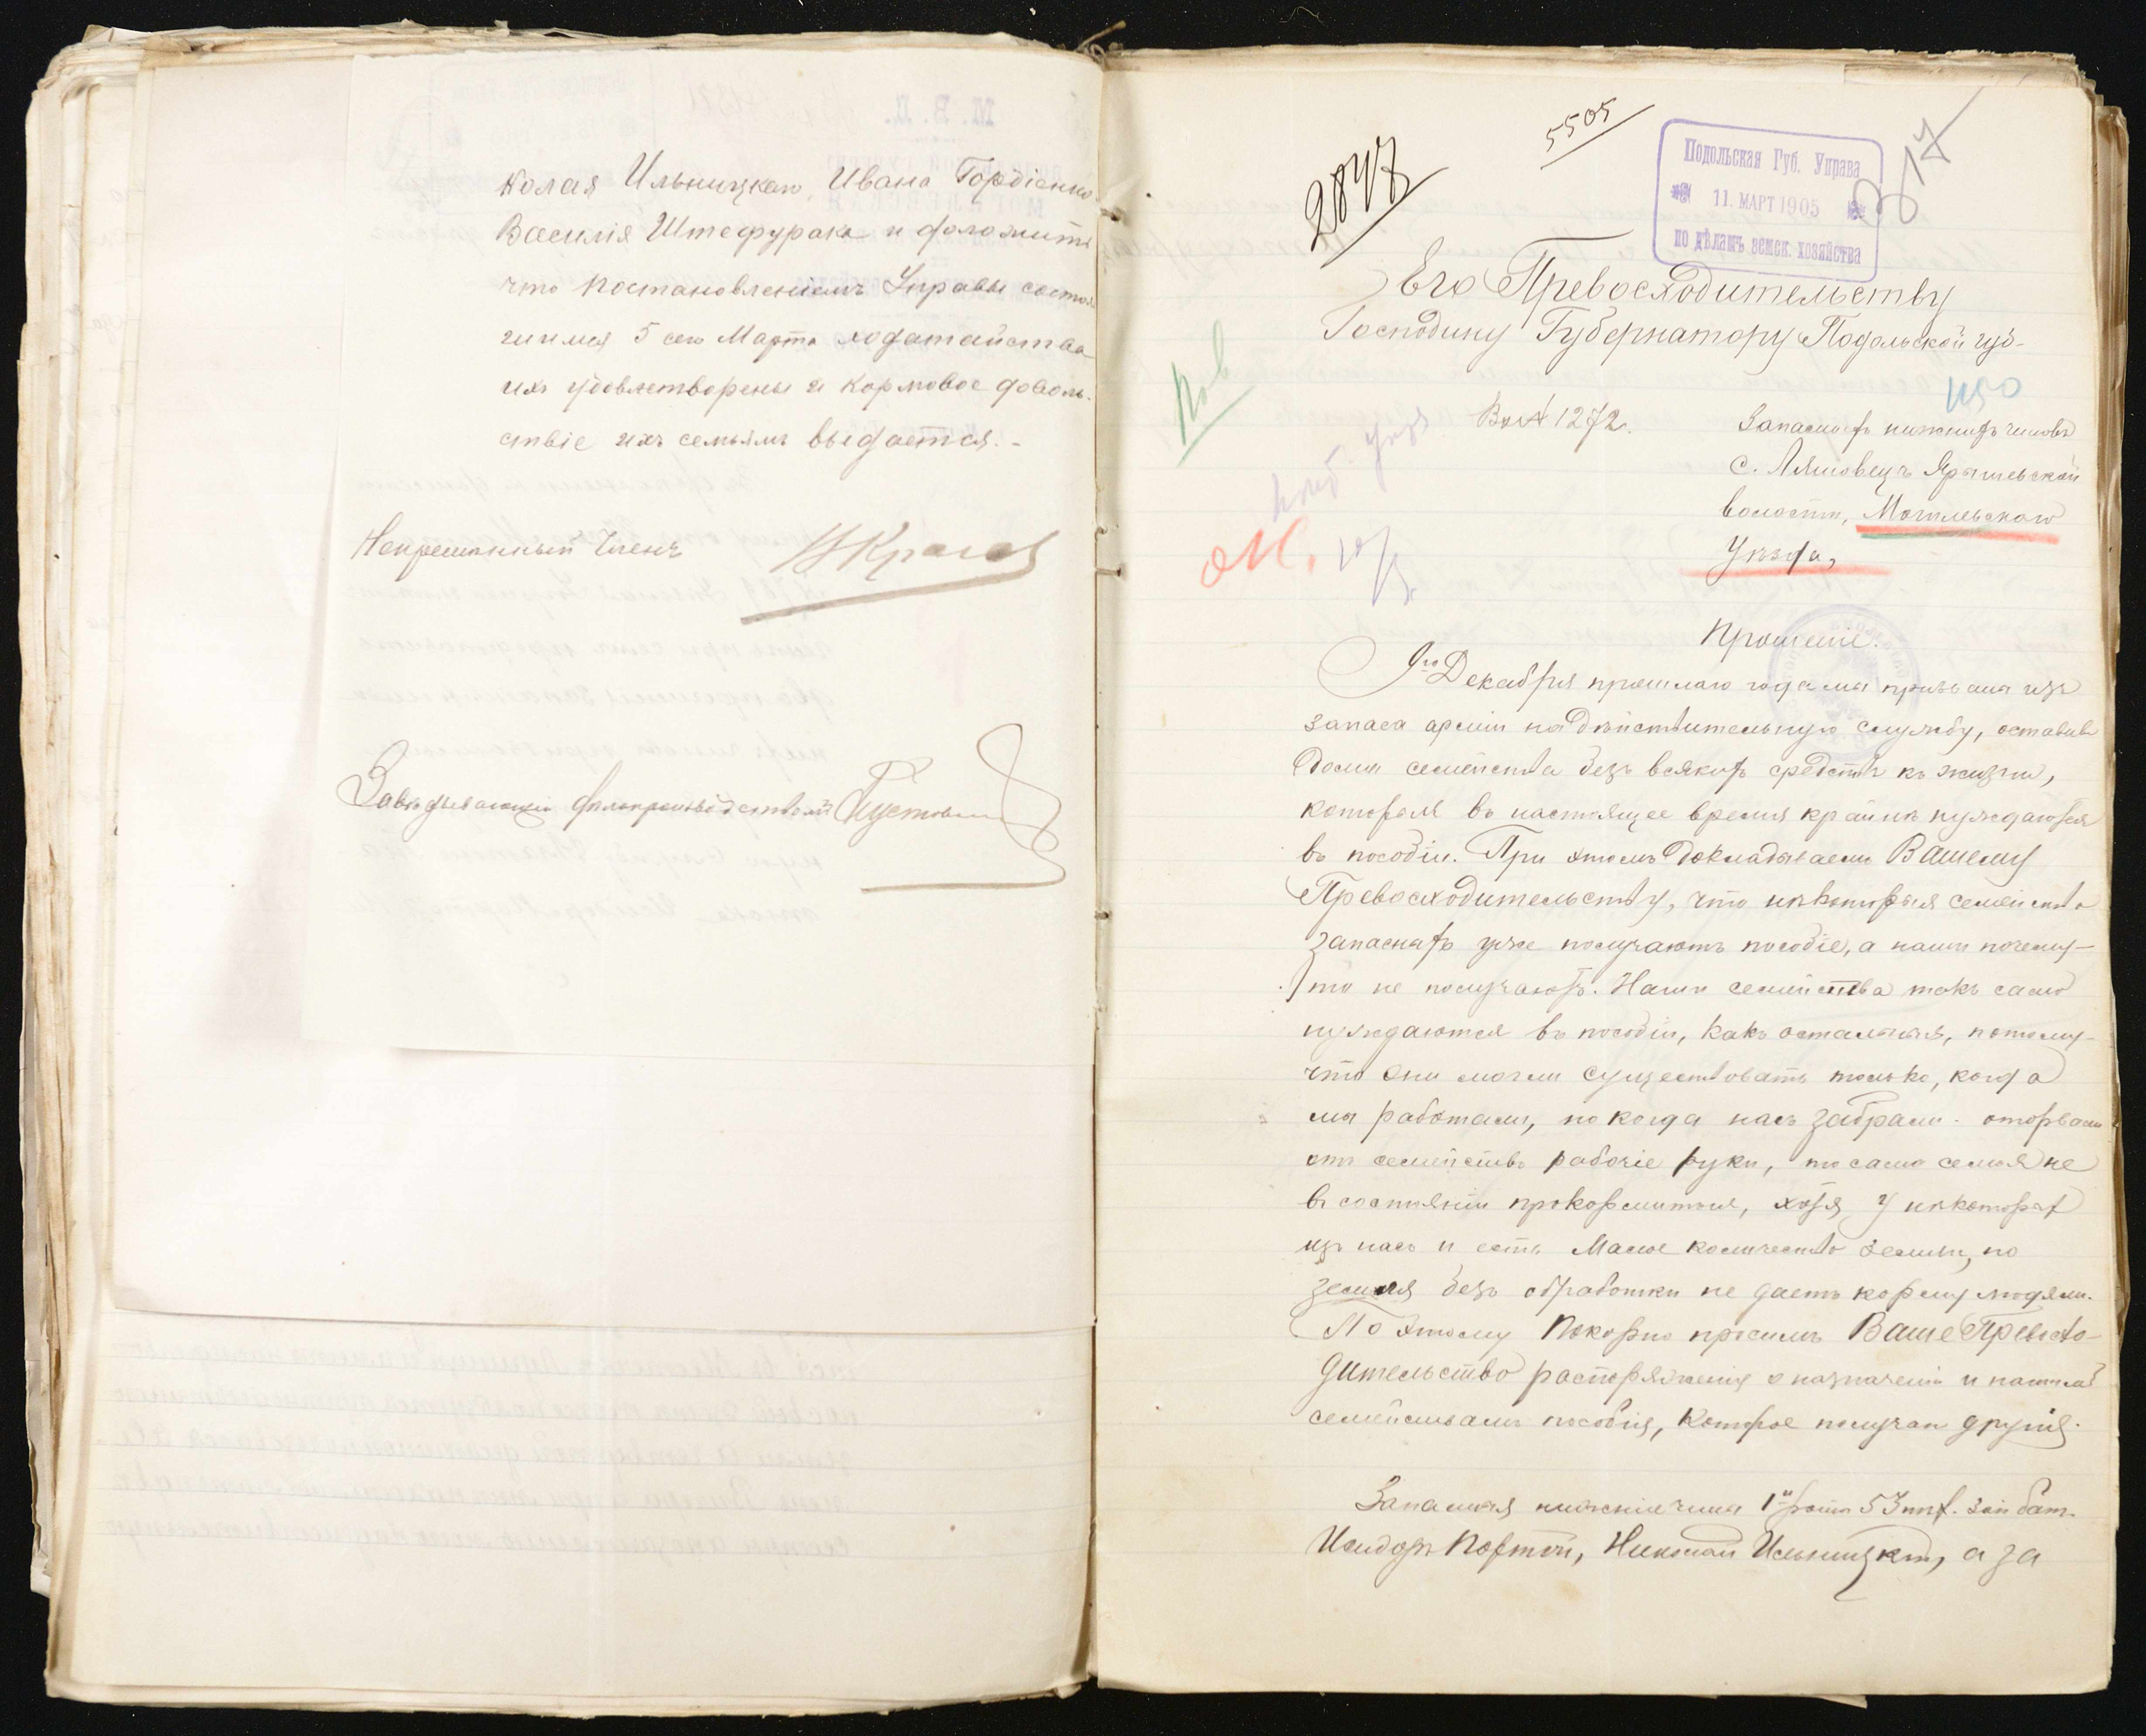 колая Ильницкаго, Ивана Гордіенко
Василія Штефурака и доложить
что постановленіемъ Управы состо-
явшимся 5 сего Марта ходатайства
ихъ удовлетворены и кормовое доволь-
ствіе ихъ семьямъ выдается.-
Непремѣнный Членъ
Завѣдывающій дѣлопроизводствомъ
5505
2847
Подольская Губ. Управа
11. МАРТ 1905
по дѣламъ земск. хозяйства
217
Его Превосходительству
Господину Губернатору Подольской губ-
Вх № 1272.
Запасныхъ нижнихъ чиновъ
с. Ляшовецъ Ярышевской
волости, Могилевскаго
Уѣзда,
Прошеніе.
9го Декабря прошлаго года мы призваны изъ
запаса арміи на дѣйствительную службу, оставивъ
дома семейства безъ всякихъ средствъ къ жизни,
которыя въ настоящее время крайнѣ нуждаются
въ пособіи. При этомъ докладываемъ Вашему
Превосходительству, что нѣкоторыя семейства
запасныхъ уже получаютъ пособіе, а наши почему-
то не получаютъ. Наши семейства такъ само
нуждаются въ пособіи, какъ остальныя, потому-
что они могли существовать только, когда
мы работали, но когда насъ забрали - оторвали
отъ семействъ рабочіе руки, то сама семья не
въ состояніи прокормиться, хотя у нѣкоторыхъ
изъ насъ и есть малое количество земли, но
земля безъ обработки не даетъ корму людямъ.
По этому покорно просимъ Ваше Превосхо-
дительство распоряженія о назначеніи и нашимъ
семействамъ пособія, которое получаютъ другія.
Запасныя нижніе чины 1й роты 53 пѣх. зап бат.
Исидоръ Портой, Николай Ильницкій, а за